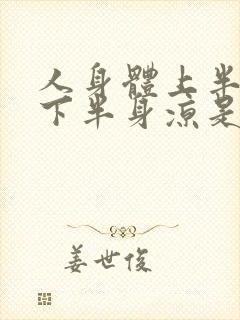 人身體上半
下半身涼是
姜世俊